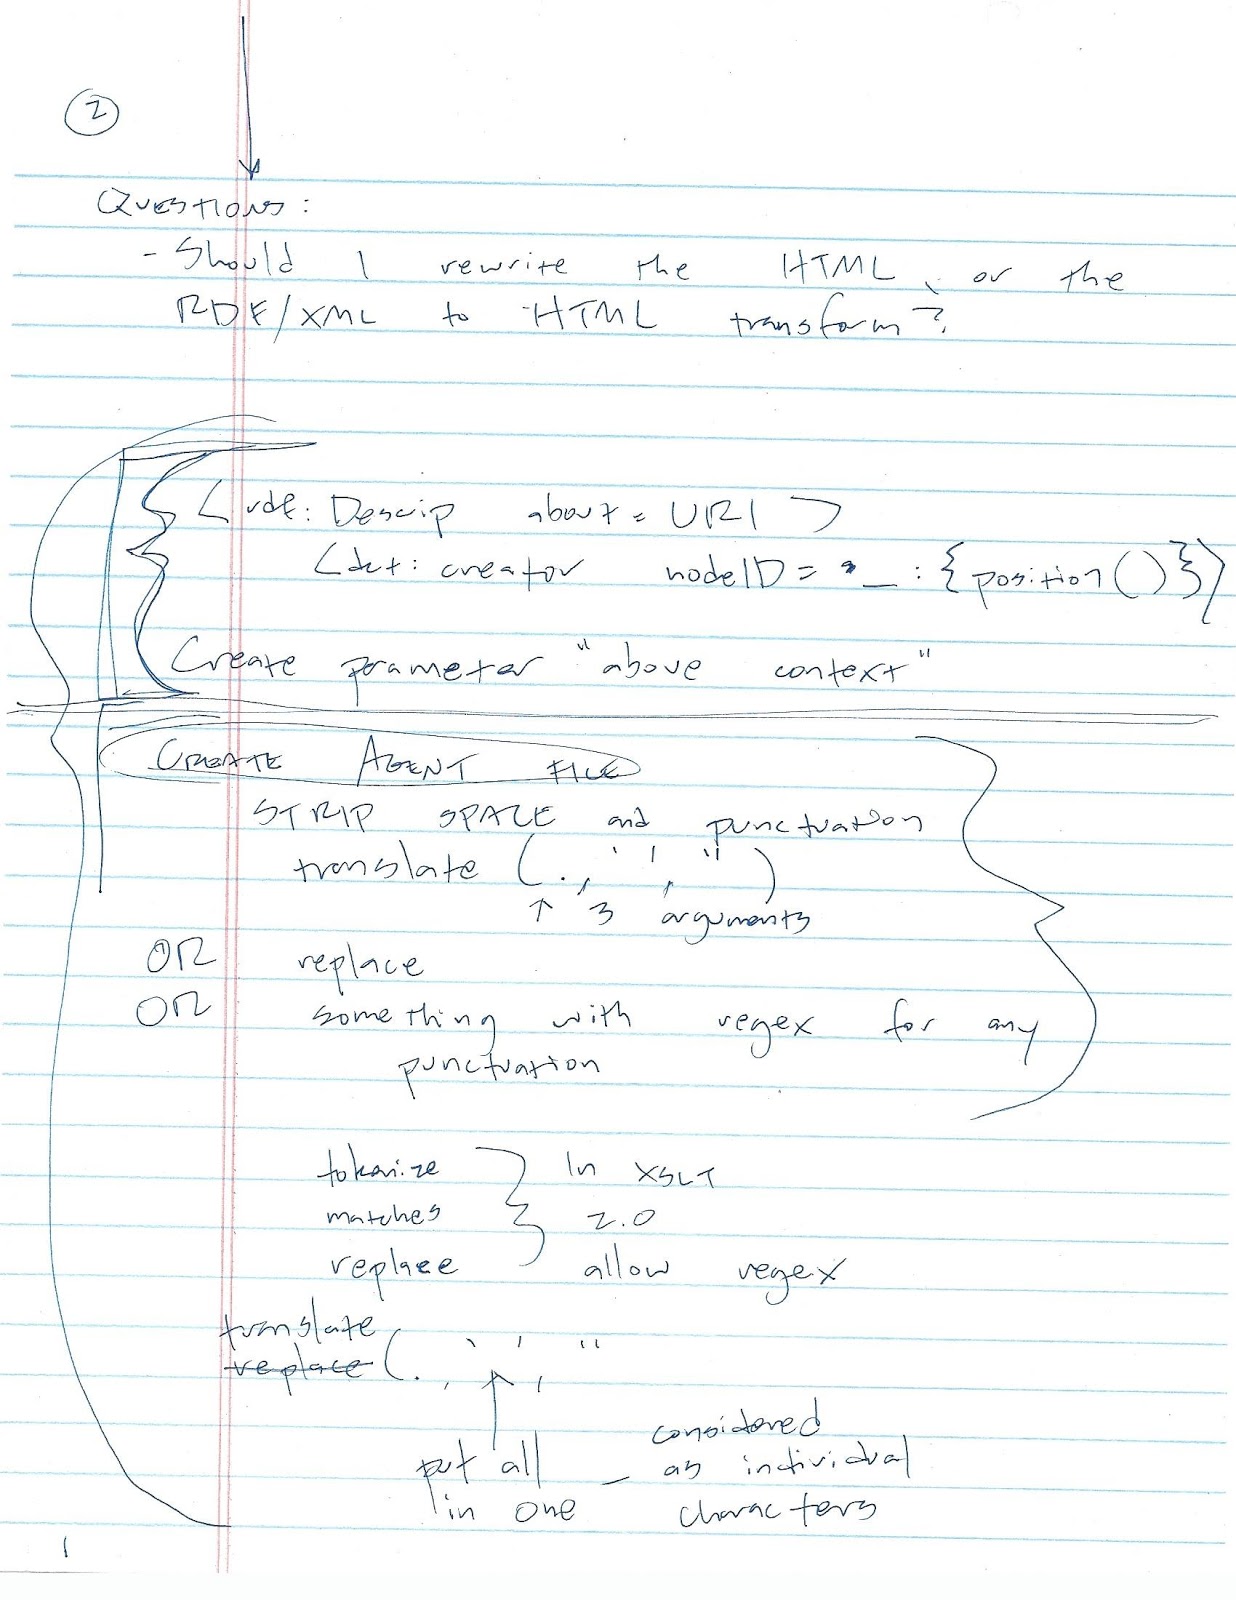 2
Questions:
- Should I rewrite the HTML, or the
RDF/XML to HTML transform?
<rdf: Descrip about = URI >
<dct: creator nodeID = "_ : {position()}>
Create parameter "above context"
CREATE AGENT FILE
STRIP SPACE and punctuation
translate (., ' ', '')
↑ 3 arguments
OR replace
OR something with regex for any
punctuation
tokenize } In XSLT
matches } 2.0
replace } allow regex
translate
replace (., ' ', ''
put all - considered
in one as individual
characters